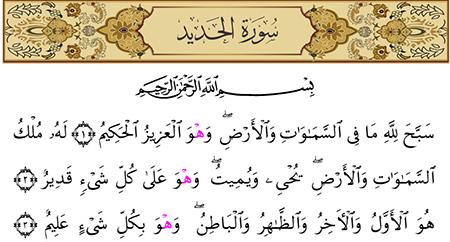 سُورَةُ الحَدِيد
بِسْمِ ٱللَّهِ ٱلرَّحْمَٰنِ ٱلرَّحِيمِ
سَبَّحَ لِلَّهِ مَا فِى السَّمَٰوَٰتِ وَالْأَرْضِۖ وَهْوَ الْعَزِيزُ الْحَكِيمُ ﴿١﴾ لَهُۥ مُلْكُ
السَّمَٰوَٰتِ وَالْأَرْضِۖ يُحْيِۦ وَيُمِيتُۖ وَهْوَ عَلَىٰ كُلِّ شَىْءٍ قَدِيرٌ ﴿٢﴾
هُوَ الْأَوَّلُ وَالْأَخِرُ وَالظَّٰهِرُ وَالْبَاطِنُۖ وَهْوَ بِكُلِّ شَىْءٍ عَلِيمٌ ﴿٣﴾